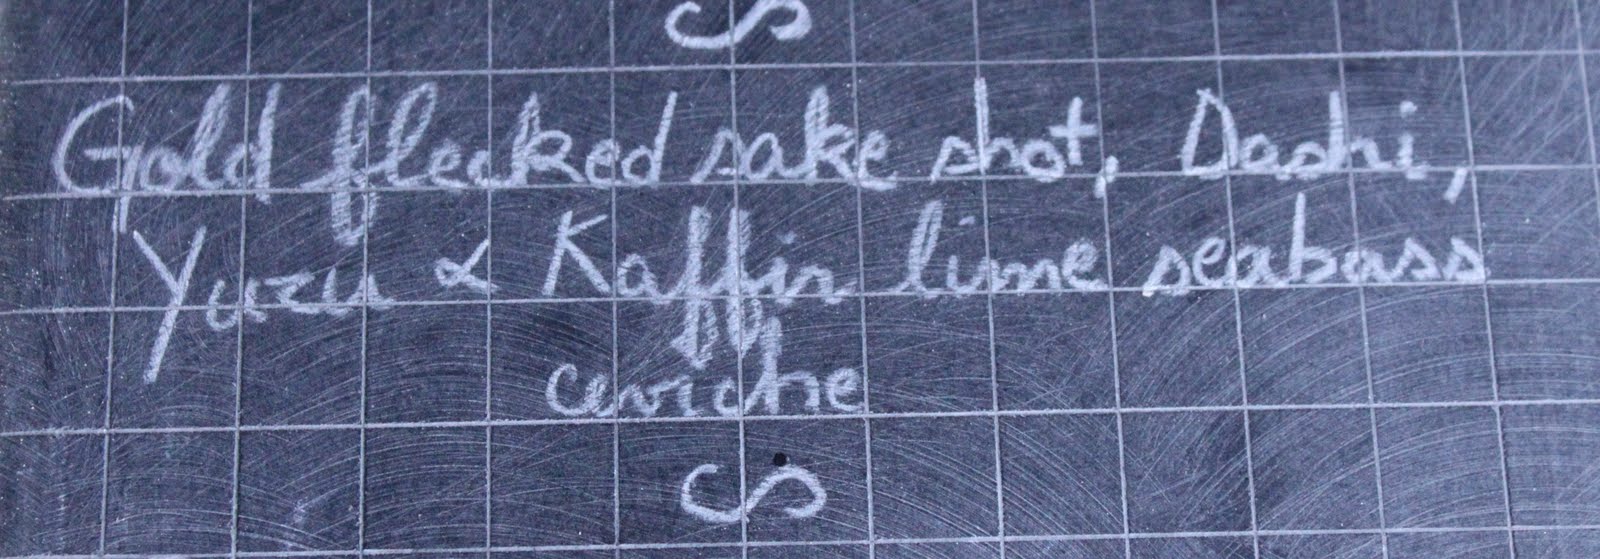 Gold flecked sake shot, Dashi,
Yuzu & Kaffir lime seabass
ceviche